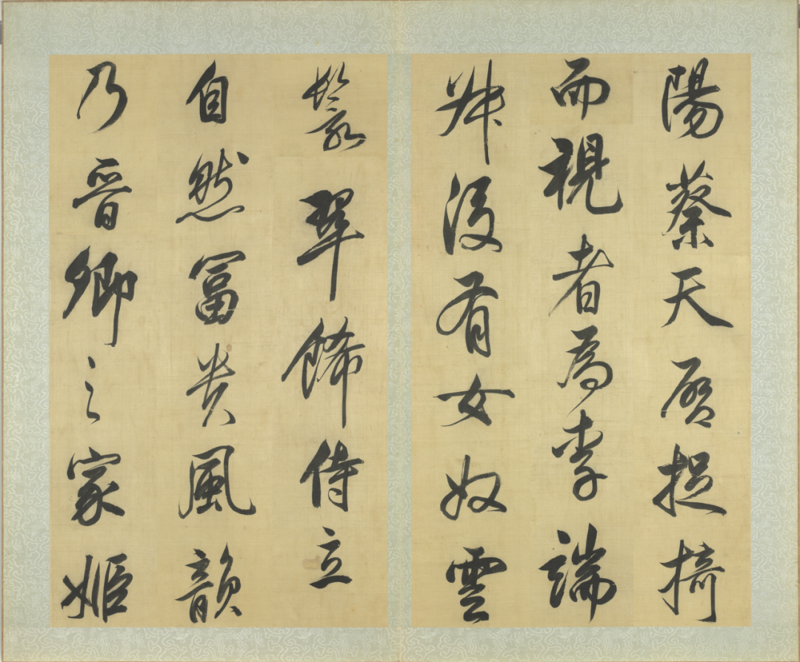 陽蔡天啓捉掎
而視者為李端
叔後有女奴雲
鬟翠飾侍立
自然富貴風韻
乃晉卿之家姬